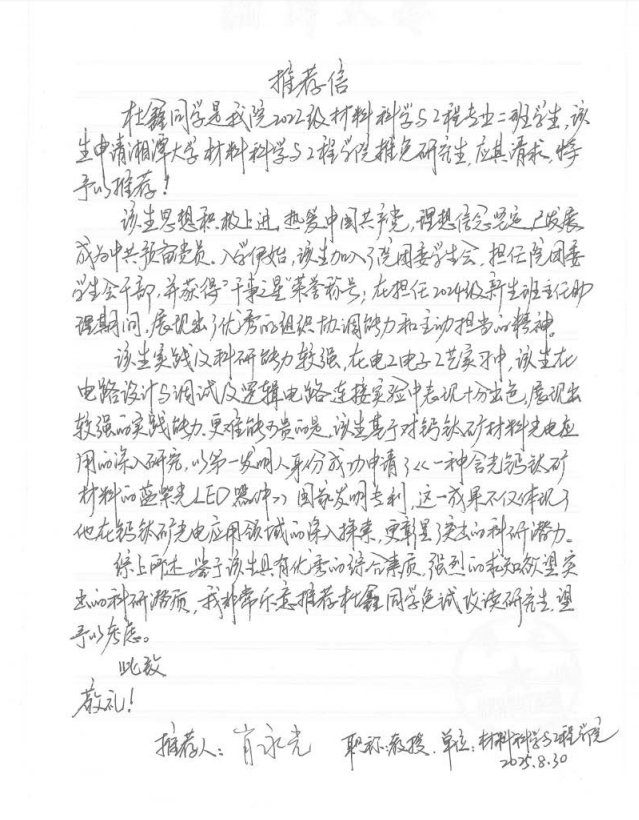 推荐信
杜鑫同学是我院2022级材料科学与工程专业二班学生,该
生申请湘潭大学材料科学与工程学院推免研究生,应其请求,特
予以推荐!
该生思想积极上进,热爱中国共产党,理想信念坚定,已发展
成为中共预备党员。入学伊始,该生加入了院团委学生会,担任院团委
学生会干部,并获得"干事之星"荣誉称号;在担任2024级新生班主任助
理期间,展现出了优秀的组织协调能力和主动担当的精神。
该生实践及科研能力较强,在电工电子工艺实习中,该生在
电路设计与调试及逻辑电路连接实验中表现十分出色,展现出
较强的实践能力。更难能可贵的是,该生基于对钙钛矿材料光电应
用的深入研究,以第一发明人身份成功申请了《一种含光钙钛矿
材料的蓝紫光LED器件》国家发明专利,这一成果不仅体现了
他在钙钛矿光电应用领域的深入探索,更彰显了突出的科研潜力。
综上所述,鉴于该生具有优秀的综合素质,强烈的求知欲望突
出的科研潜质,我非常乐意推荐杜鑫同学免试攻读研究生,望
予以考虑。
此致
敬礼!
推荐人:肖永光 职称:教授 单位:材料科学与工程学院
2025.8.30